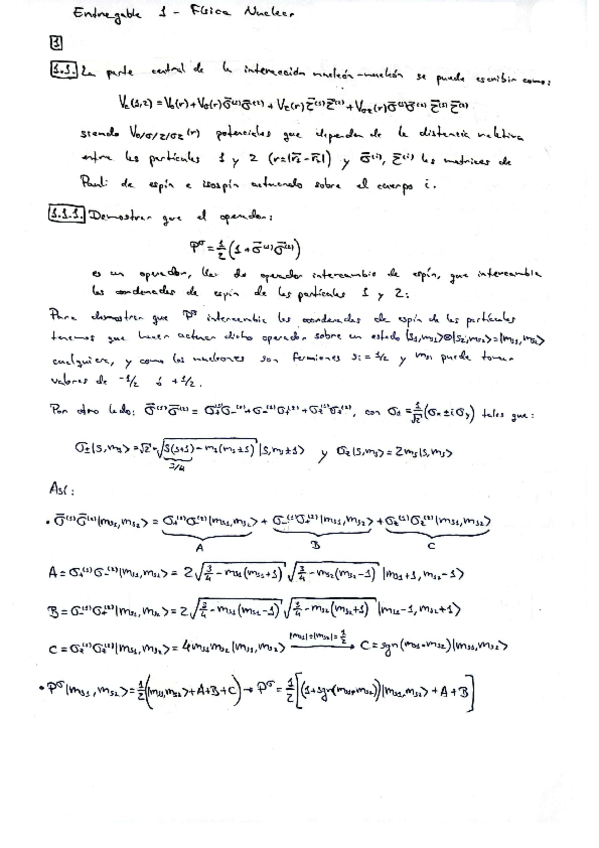 Entregable 1 - Física Nuclear
1
1.1. La parte central de la interacción nucleón-nucleón se puede escribir como:
V_c(1,2) = V_0(r) + V_σ(r) σ̄⁽¹⁾σ̄⁽²⁾ + V_τ(r) τ̄⁽¹⁾τ̄⁽²⁾ + V_στ(r) σ̄⁽¹⁾σ̄⁽²⁾ τ̄⁽¹⁾τ̄⁽²⁾
siendo V_0/σ/τ/στ(r) potenciales que dependen de la distancia relativa
entre las partículas 1 y 2 (r=|r̄₁-r̄₂|) y σ̄⁽ⁱ⁾, τ̄⁽ⁱ⁾ las matrices de
Pauli de espín e isospín actuando sobre el cuerpo i.
1.1.1. Demostrar que el operador:
P^σ = 1/2 (1 + σ̄⁽¹⁾σ̄⁽²⁾)
es un operador, operador intercambio de espín, que intercambia
las coordenadas de espín de las partículas 1 y 2:
Para demostrar que P^σ intercambia las coordenadas de espín de las partículas
tenemos que hacer actuar dicho operador sobre un estado |s₁,m_s1>⊗|s₂,m_s2> = |m_s1,m_s2>
cualquiera, y como los nucleones son fermiones s_i = 1/2 y m_si puede tomar
valores de -1/2 ó +1/2.
Por otro lado: σ̄⁽¹⁾σ̄⁽²⁾ = σ₊⁽¹⁾σ₋⁽²⁾ + σ₋⁽¹⁾σ₊⁽²⁾ + σ_z⁽¹⁾σ_z⁽²⁾, con σ_± = 1/√2 (σ_x ± iσ_y) tales que:
σ_±|s,m_s> = √2·√(s(s+1) - m_s(m_s±1)) |s,m_s±1> y σ_z|s,m_s> = 2m_s|s,m_s>
3/4
Así:
• σ̄⁽¹⁾σ̄⁽²⁾|m_s1,m_s2> = σ₊⁽¹⁾σ₋⁽²⁾|m_s1,m_s2> + σ₋⁽¹⁾σ₊⁽²⁾|m_s1,m_s2> + σ_z⁽¹⁾σ_z⁽²⁾|m_s1,m_s2>
A B C
A = σ₊⁽¹⁾σ₋⁽²⁾|m_s1,m_s2> = 2√(3/4 - m_s1(m_s1+1)) √(3/4 - m_s2(m_s2-1)) |m_s1+1, m_s2-1>
B = σ₋⁽¹⁾σ₊⁽²⁾|m_s1,m_s2> = 2√(3/4 - m_s1(m_s1-1)) √(3/4 - m_s2(m_s2+1)) |m_s1-1, m_s2+1>
C = σ_z⁽¹⁾σ_z⁽²⁾|m_s1,m_s2> = 4m_s1m_s2|m_s1,m_s2> —|m_s1|=|m_s2|=1/2→ C = sgn(m_s1·m_s2)|m_s1,m_s2>
• P^σ|m_s1,m_s2> = 1/2 (|m_s1,m_s2> + A + B + C) → P^σ = 1/2 [(1 + sgn(m_s1·m_s2))|m_s1,m_s2> + A + B]